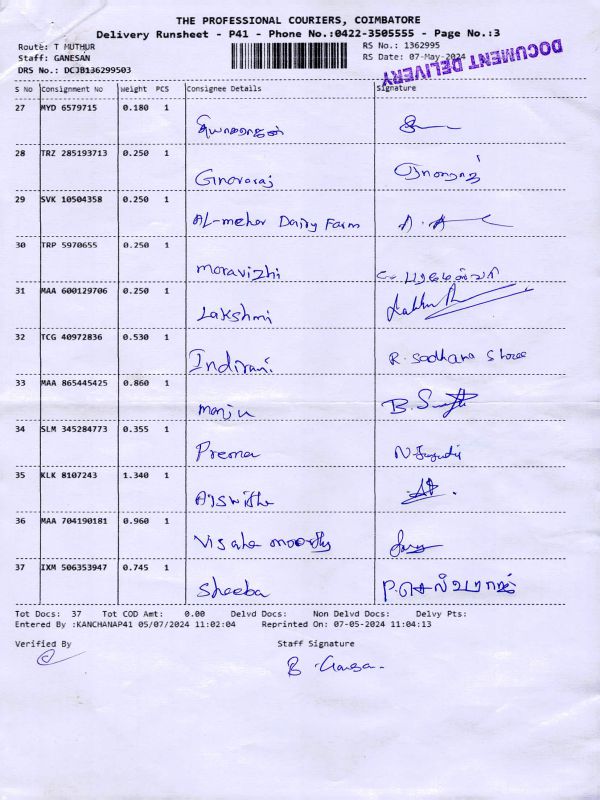 THE PROFESSIONAL COURIERS, COIMBATORE
Delivery Runsheet - P41 - Phone No.:0422-3505555 - Page No.:3
Route: T MUTHUR
Staff: GANESAN
DRS No.: DCJB136299503
RS No.: 1362995
RS Date: 07-May-2024
DOCUMENT DELIVERY
S No Consignment No Weight PCS Consignee Details Signature
27 MYD 6579715 0.180 1
28 TRZ 285193713 0.250 1
29 SVK 10504358 0.250 1 AL-meher Dairy Farm
30 TRP 5970655 0.250 1 moravizhi
31 MAA 600129706 0.250 1 Lakshmi
32 TCG 40972836 0.530 1 Indirani R. Sadhana Shree
33 MAA 865445425 0.860 1 manju
34 SLM 345284773 0.355 1 Prema
35 KLK 8107243 1.340 1
36 MAA 704190181 0.960 1
37 IXM 506353947 0.745 1 Sheeba P. செல்வராஜ்
Tot Docs: 37 Tot COD Amt: 0.00 Delvd Docs: Non Delvd Docs: Delvy Pts:
Entered By :KANCHANAP41 05/07/2024 11:02:04 Reprinted On: 07-05-2024 11:04:13
Verified By Staff Signature